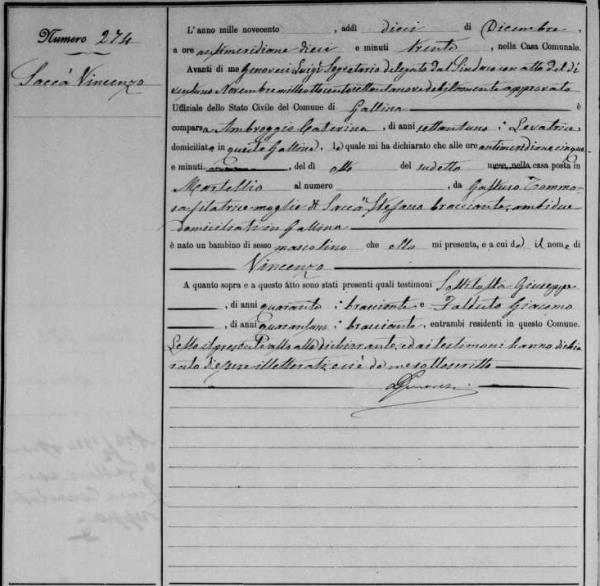 Numero 274
Saccà Vincenzo
L'anno mille novecento , addì dieci di Dicembre,
a ore antimeridiane dieci e minuti trenta , nella Casa Comunale.
Avanti di me Genovesi Luigi Segretario delegato dal Sindaco con atto del di
ventuno Novembre mille ottocento settantanove debitamente approvato
Uffiziale dello Stato Civile del Comune di Gallina è
comparsa Ambroggio Caterina , di anni settantuno : Levatrice
domiciliata in questa Gallina, la quale mi ha dichiarato che alle ore antimeridiane cinque
e minuti , del dì otto del sudetto mese, nella casa posta in
Mortellio al numero , da Tomma-
sa filatrice moglie di Saccà Stefano bracciante, ambidue
domiciliati in Gallina
è nato un bambino di sesso mascolino che ella mi presenta, e a cui dà il nome di
Vincenzo
A quanto sopra e a questo atto sono stati presenti quali testimoni Giuseppe
, di anni quaranta : bracciante e Falduto Giacomo
, di anni : bracciante, entrambi residenti in questo Comune.
Letto il presente atto alla dichiarante, ed ai testimoni hanno dichia-
rato di essere illetterati, ed è da me sottoscritto